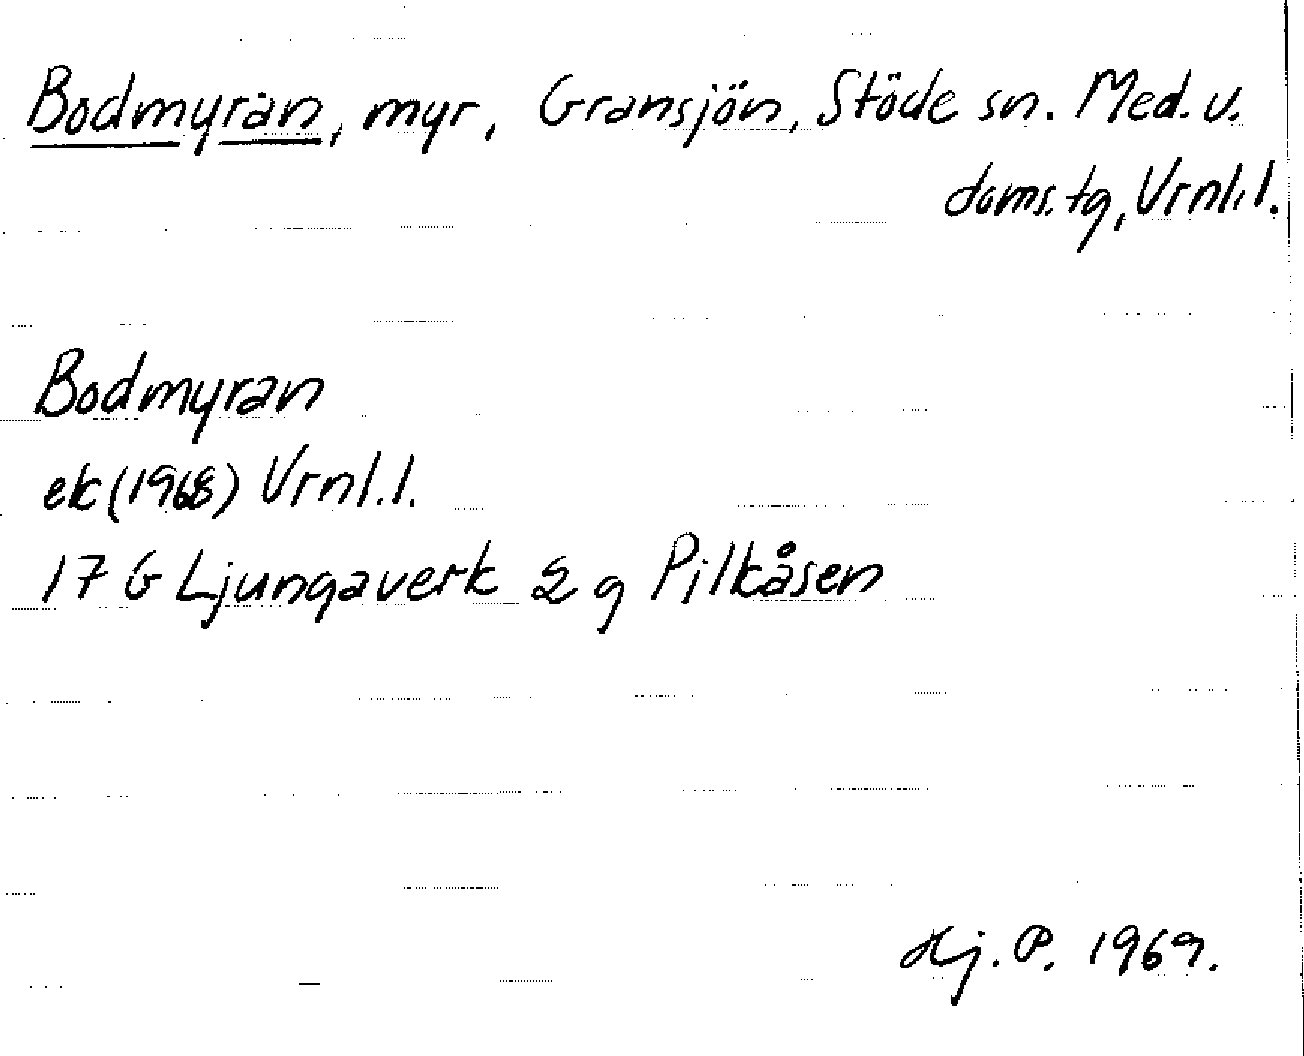 Bodmyran, myr, Gransjön, Stöde sn. Med. v.
doms.tg, Vrnl.l.
Bodmyran
ek (1968) Vrnl.l.
17 G Ljungaverk 2 g Pilkåsen
Hj. P. 1969.